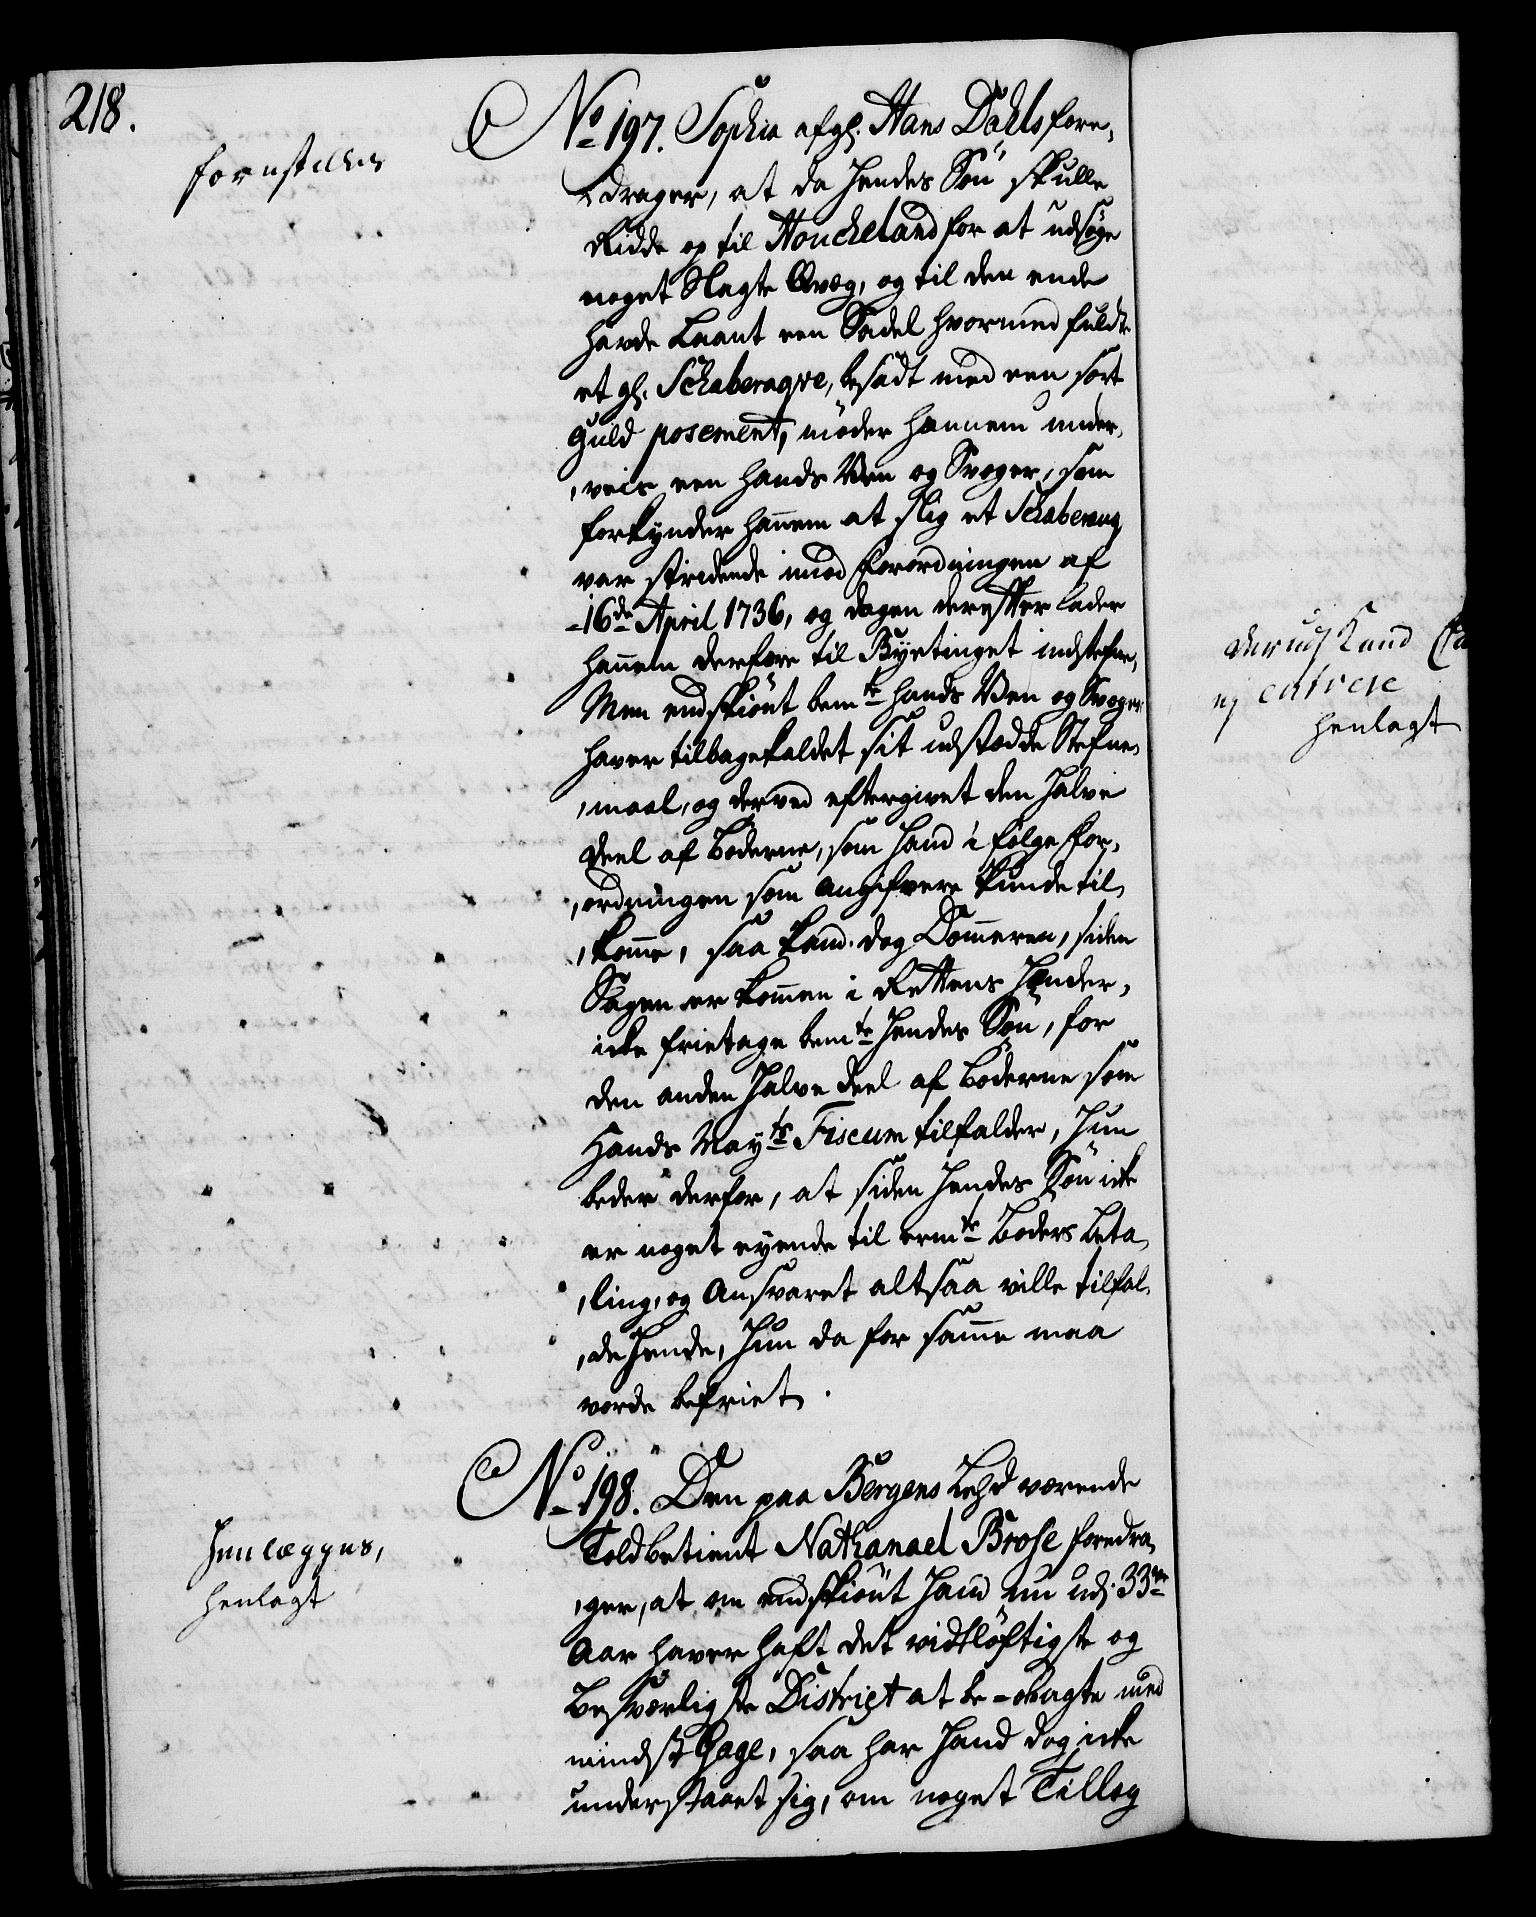 218.
forestilles
No 197. Sophia afgl. Hans Dahls fore,
,drager, at da hendes Søn skulle
Ridde op til Houckeland for at udsøge
noget Slagte Qvæg, og til den ende
hafde Laant een Sadel hvormed fuldte
et gl. Schaberaqve, besadt med een sort
Guld posement, møder hannem under,
,veis een hands Ven og Svoger, som
forkynder hannem at slig et Schaberaq
var stridende imod forordningen af
16de April 1736, og dagen derefter lader
hannem derfore til Byetinget indstefne,
Men endskiønt bemte hands Ven og Svoger
haver tilbagekaldet sit udstædde Stefne,
,maal, og derved eftergivet den halve
Deel af Bøderne, som hand i følge for,
,ordningen som Angifvere kunde til,
,komme, saa kand dog Dommeren, siden
Sagen er kommen i Rettens Hænder,
icke frietage bemte hendes Søn, for
den anden halve deel af Bøderne som
Hands Mayts Fiscum tilfalder, hun
beder derfor, at siden hendes Søn icke
er noget eyende til ermte Bøders Beta,
,ling, og Ansvaret altsaa ville tilfal,
,de hende, hun da for samme maa
vorde befriet.
No 198. Den paa Bergens Told værende
Toldbetient Nathanael Brose foredra,
,ger, at om endskiønt hand nu udj 33ve
Aar haver haft det vidtløftigste og
Besværligste District at be-obagte med
mindst Gage, saa har hand dog icke
understaaet sig, om noget Tilleg
Henlægges,
henlagt
der udj kand
ej
henlagt